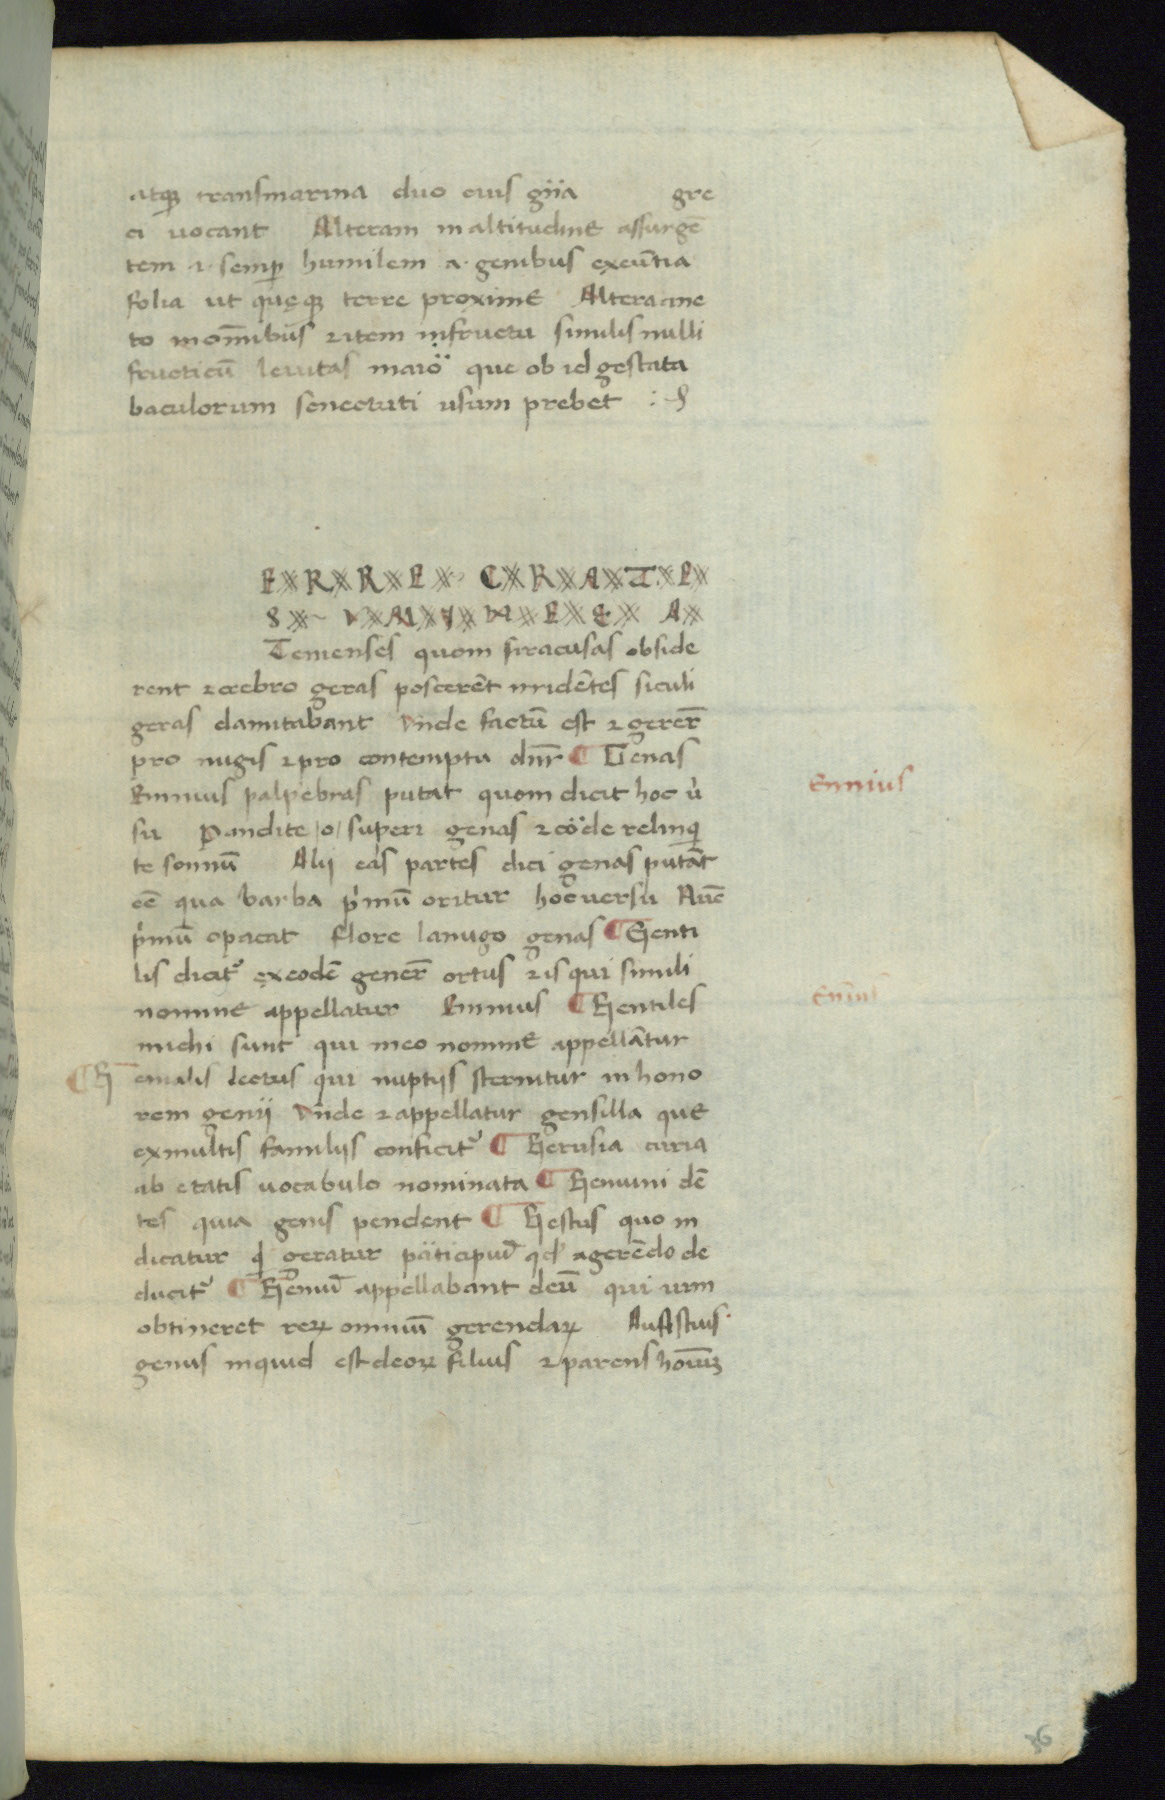 atq3 transmarina duo eius gňia gre
ci uocant Alteram in altitudine assurgē
tem ⁊ semp̱ humilem a genibus exeūtia
folia ut quęq3 terre proxime Altera ane
to in om̄ibus ⁊ item in fructu similis nulli
fruticū leuitas maior que ob id gestata
baculorum senectuti usum prebet :
E R R E C R A T E
S A
Temenses quom siracusas obside
rent ⁊ crebro geras poscerēt irridētes siculi
geras clamitabant vnde factū est ⁊ gererr̄
pro nugis ⁊ pro contemptu dnr̄ ¶ Genas
Ennius palpebras putat quom dicit hoc ů
su Pandite /o/ superi genas ⁊ corde relinqi
te somnū Alij eas partes dici genas putāt
eē qua barba pimū oritur hoc uersu Nūc
pimū opacat flore lanugo genas ¶ Genti
lis dicit᷑ ex eodē generē ortus ⁊ is qui simili
nomine appellatur Ennius ¶ Gentiles
michi sunt qui meo nomine appellātur
¶ G enialis lectus qui nuptijs sternitur in hono
rem genij vnde ⁊ appellatur gens illa que
ex multis familijs conficit᷑ ¶ Gerusia curia
ab etatis uocabulo nominata ¶ Genuini dē
tes quia genis pendent ¶ Gestus quo in
dicatur qd geratur participiū qd a gerēdo de
ducit᷑ ¶ Geniū appellabant deū qui uim
obtineret rerꝝ omniū gerendaꝝ Aufstius
genius inquid est deoꝝ filius ⁊ parens hoīum
Ennius
Eniu
36